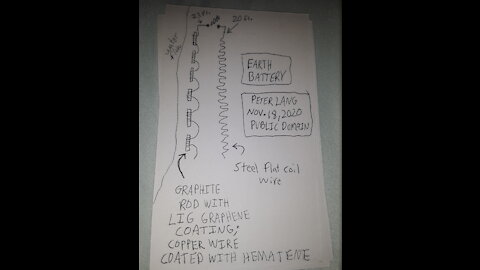 23 Ft.
20 Ft.
EARTH
BATTERY
PETER LANG
NOV. 18, 2020
PUBLIC DOMAIN
Steel flat coil
wire
GRAPHITE
ROD WITH
LIG GRAPHENE
COATING;
COPPER WIRE
COATED WITH HEMATENE